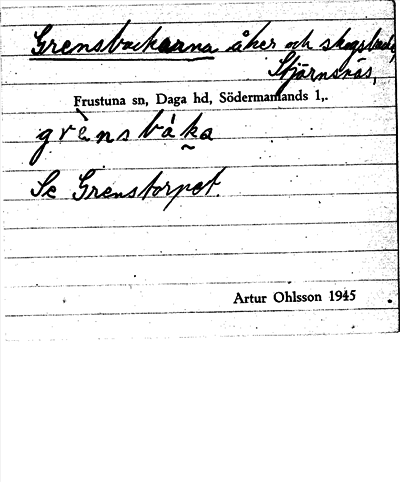 Grensbackarna åker och skogsbacke,
Stjärnsnäs,
Frustuna sn, Daga hd, Södermanlands l,.
grènsbáka
Se Grenstorpet.
Artur Ohlsson 1945